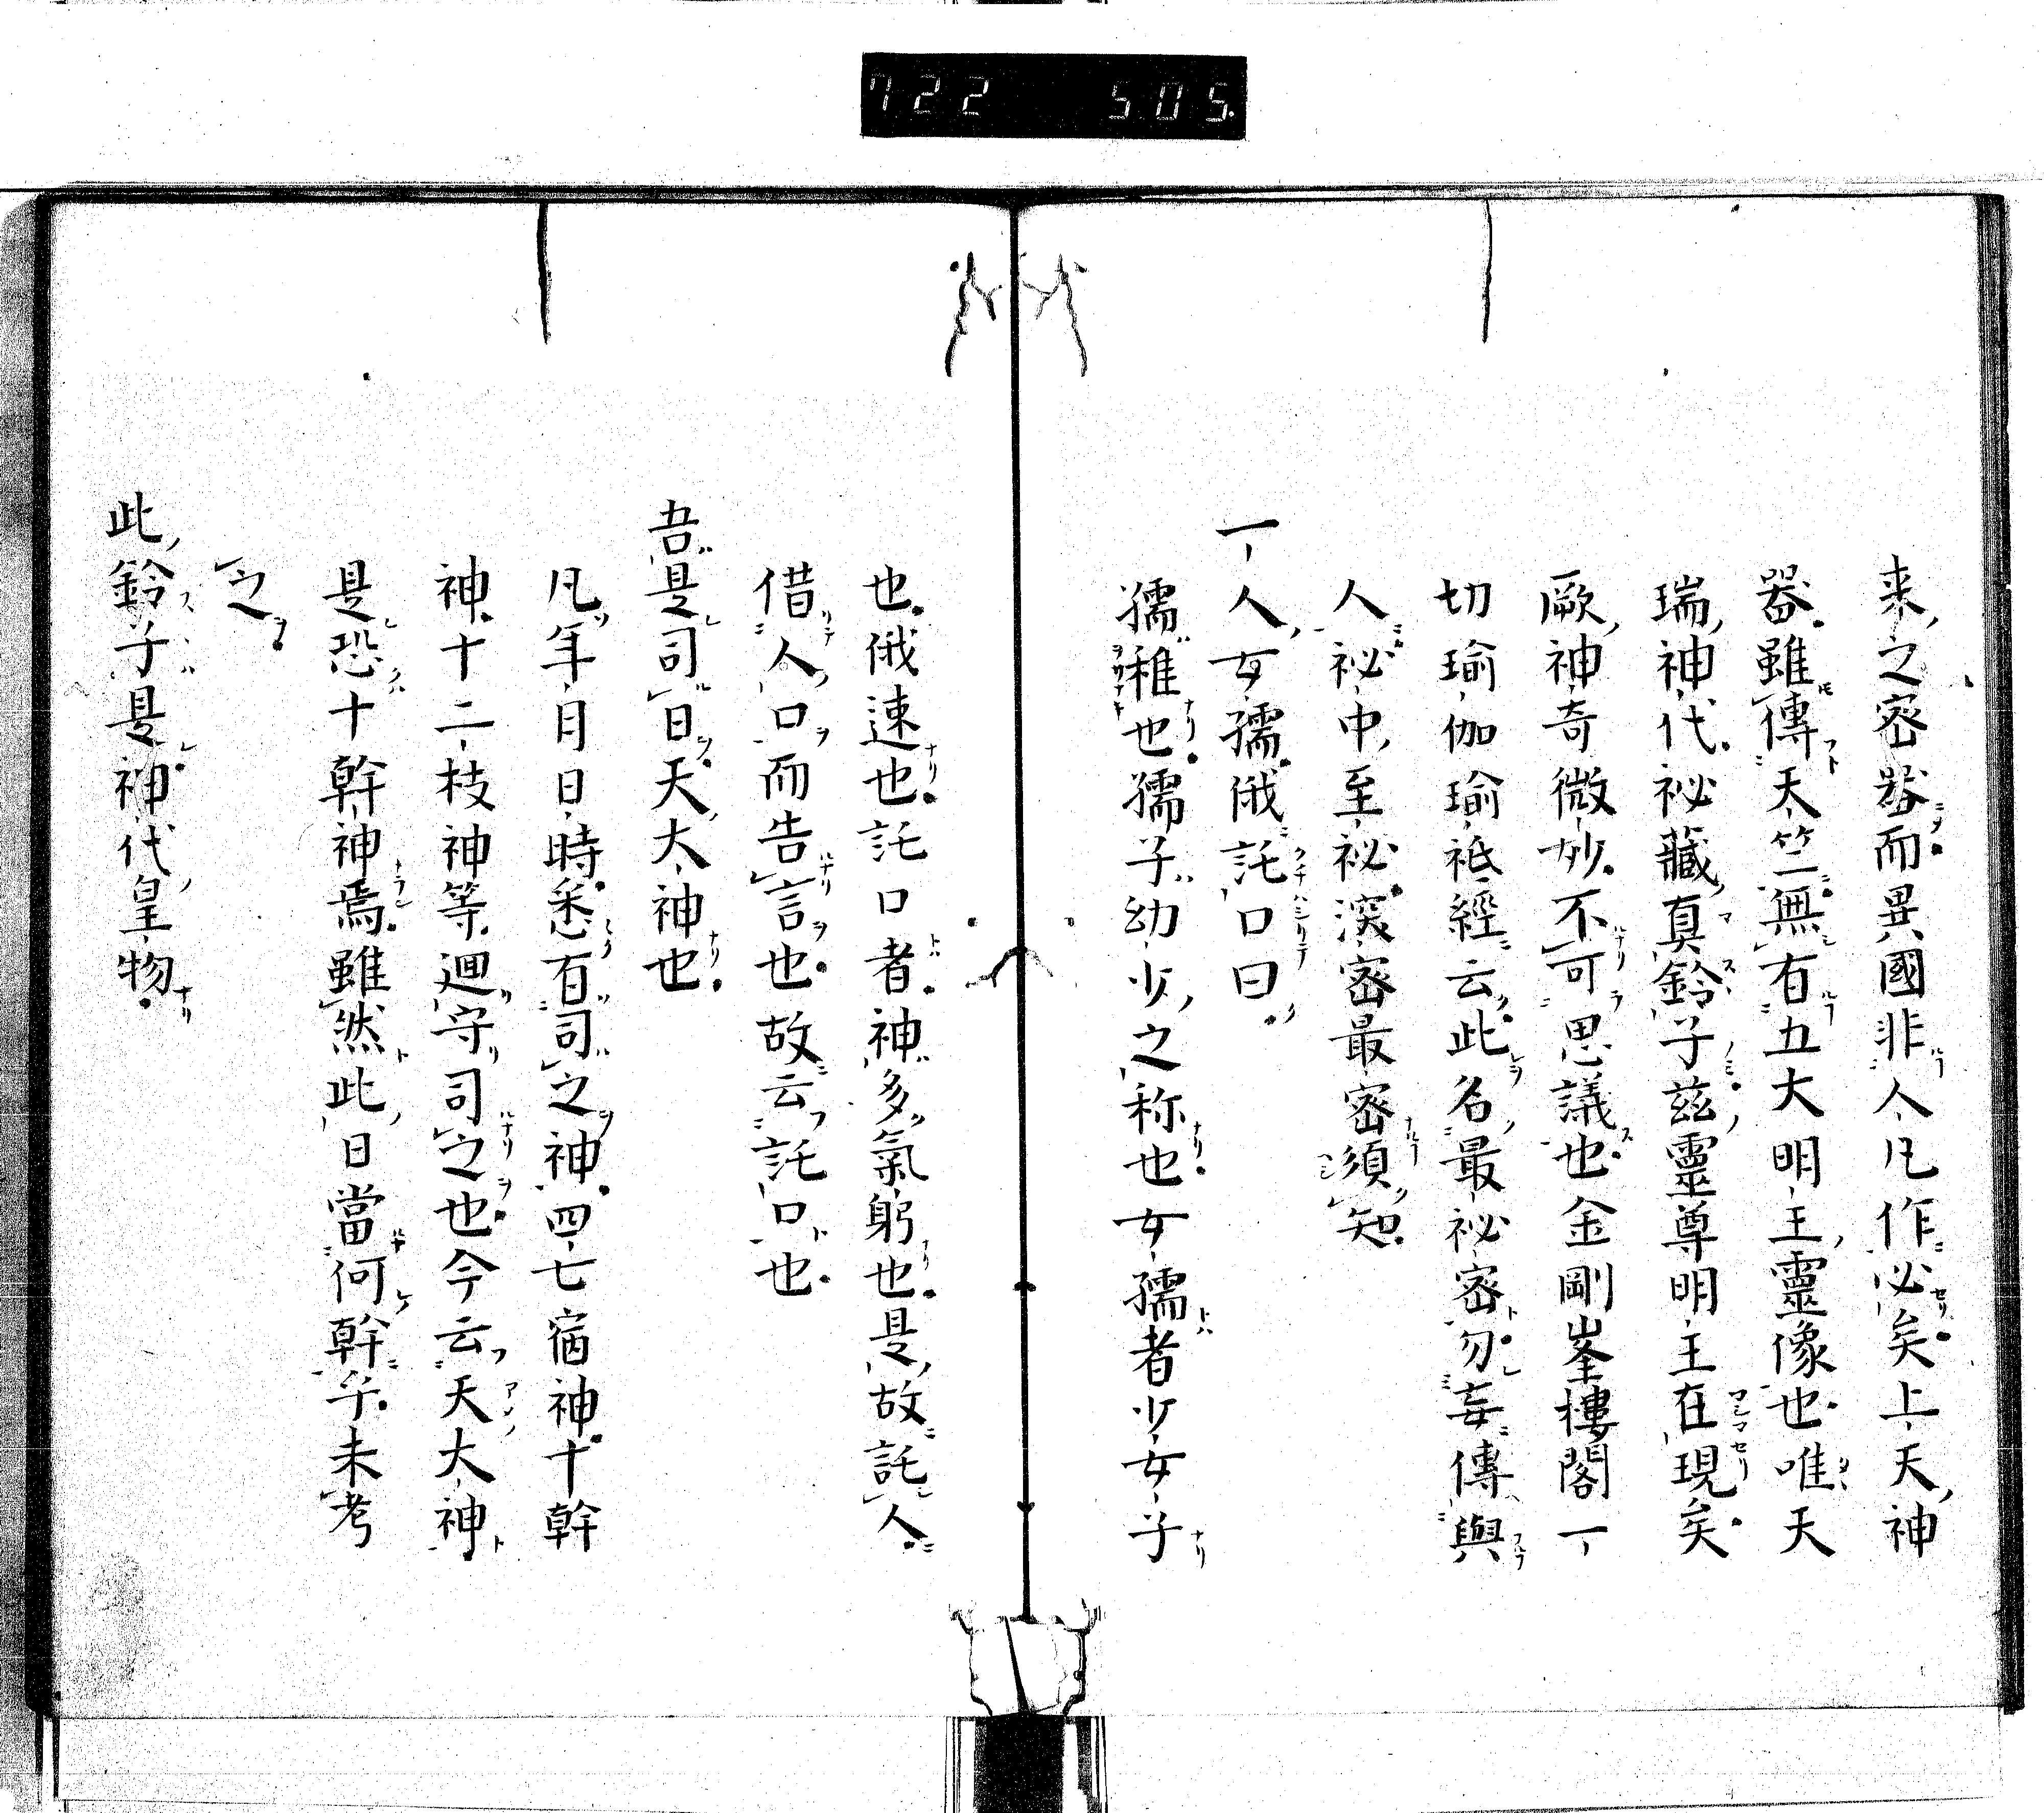 722 505.
来之密器而異國非人凡作必矣上天神
器雖傳天竺無有五大明王靈像也唯天
瑞神代祕藏真鈴子茲靈尊明王在現矣
厥神奇微妙不可思議也金剛峯樓閣一
切瑜伽瑜祇經云此名最祕密勿妄傳與
人祕中至祕深密最密須知
一人女孺俄託口曰
孺稚也孺子幼少之称也女孺者少女子
也俄速也託口者神多氣躬也是故託人
借人口而告言也故云託口也
吾是司日天大神也
凡年月日時悉有司之神四七宿神十幹
神十二枝神等廻守司之也今云天大神
是恐十幹神焉雖然此日當何幹乎未考
之
此鈴子是神代皇物